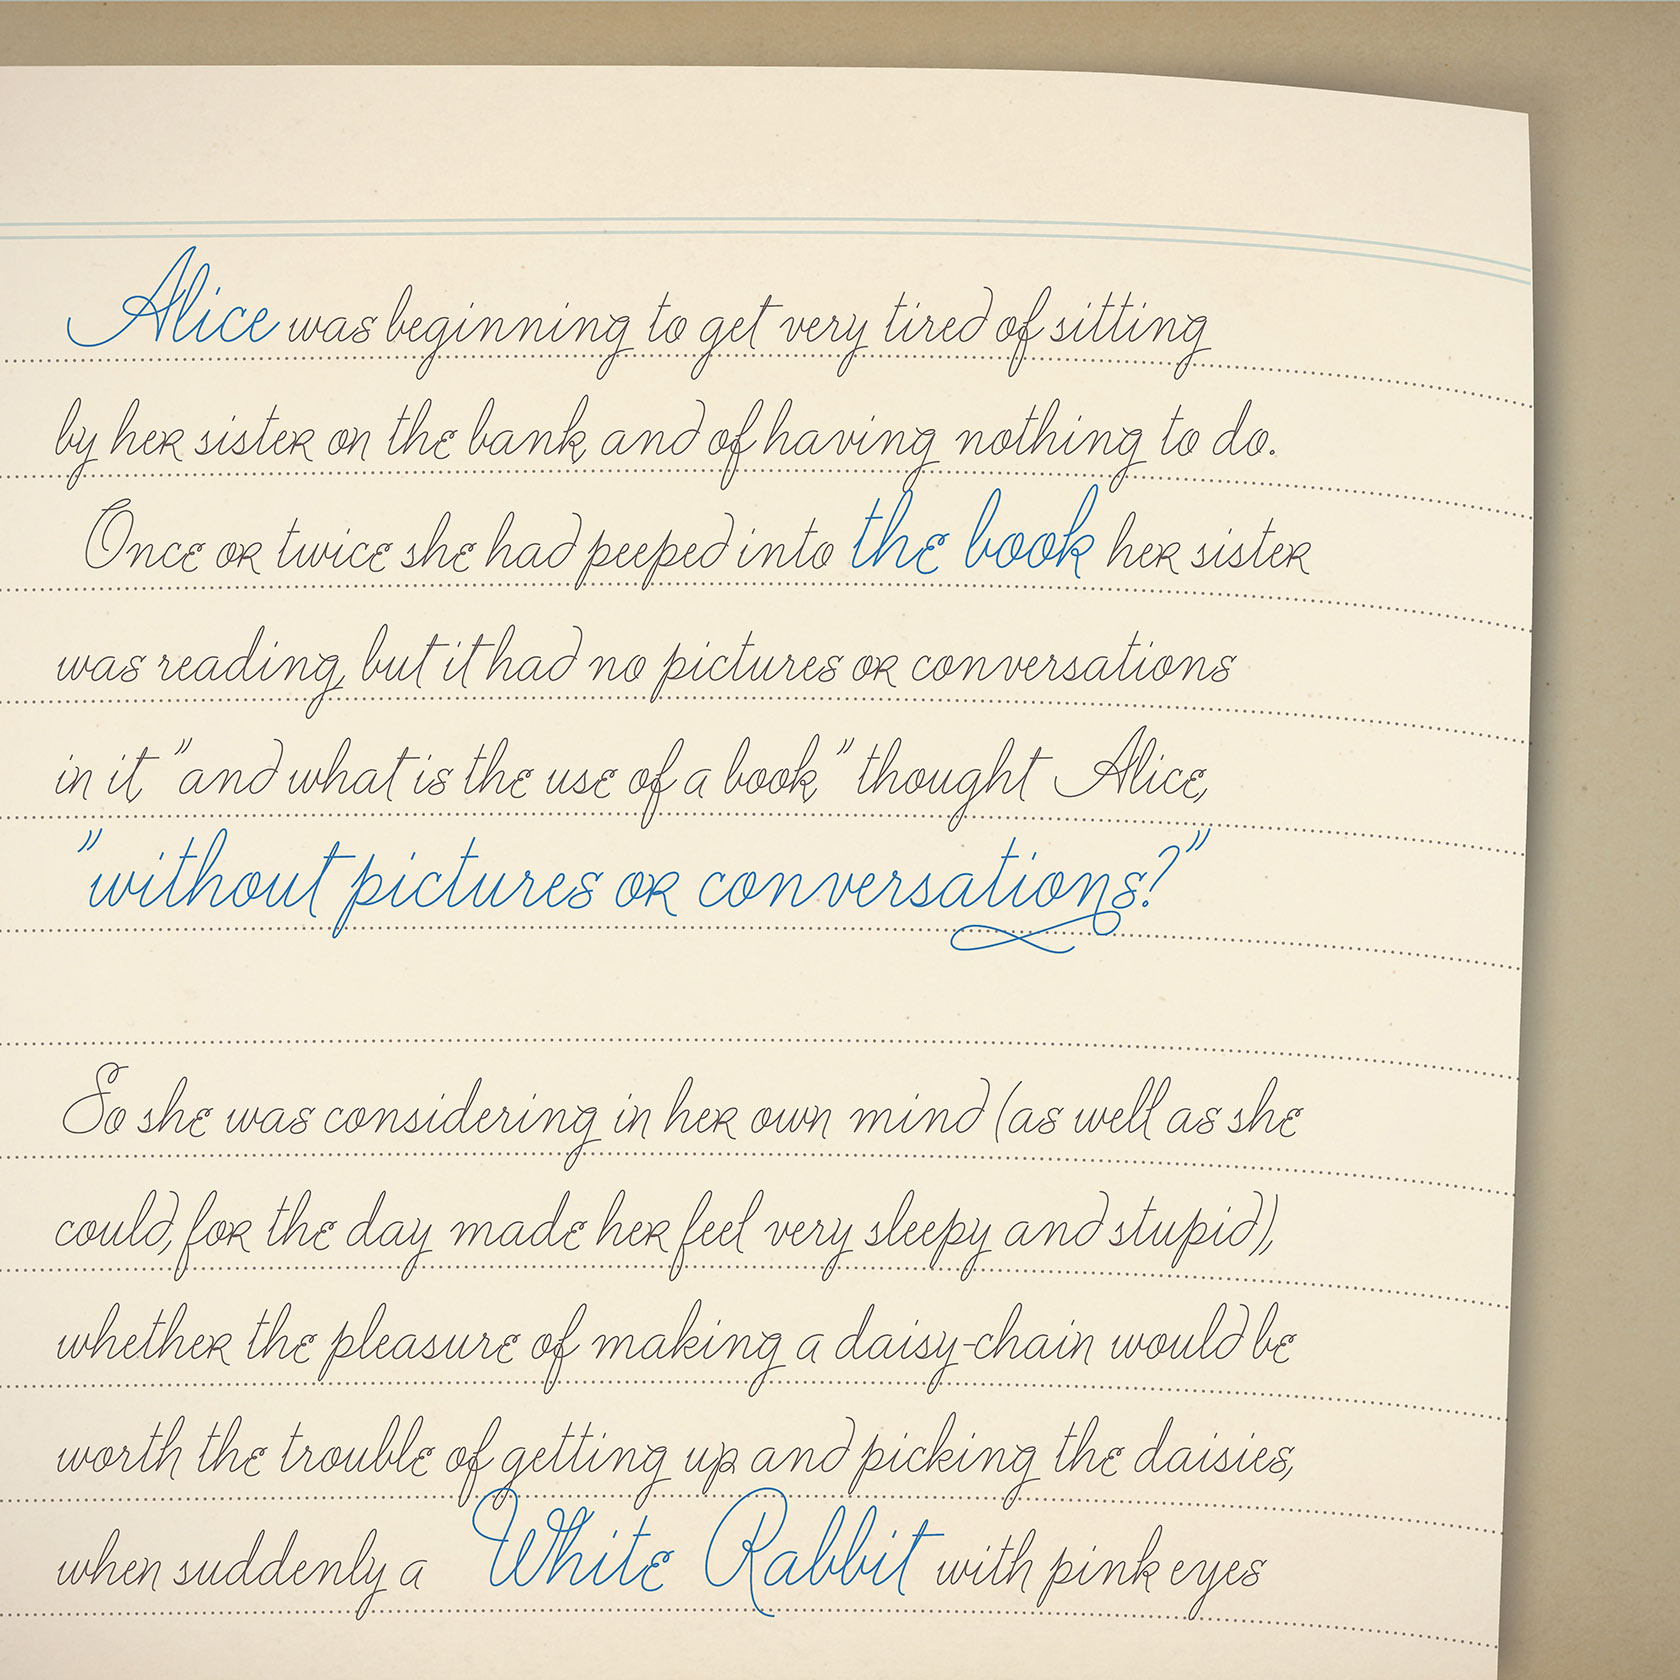 Alice was beginning to get very tired of sitting
by her sister on the bank, and of having nothing to do.
Once or twice she had peeped into the book her sister
was reading, but it had no pictures or conversations
in it, "and what is the use of a book," thought Alice,
"without pictures or conversations?"
So she was considering in her own mind (as well as she
could, for the day made her feel very sleepy and stupid),
whether the pleasure of making a daisy-chain would be
worth the trouble of getting up and picking the daisies,
when suddenly a White Rabbit with pink eyes